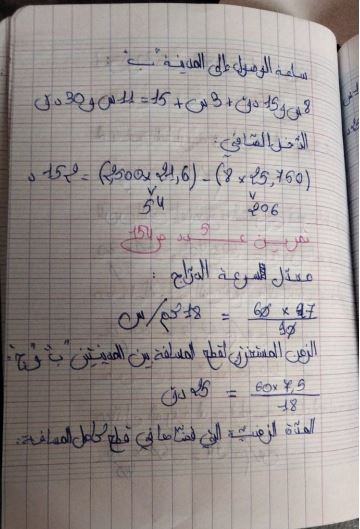 ساعة الوصول إلى المدينة "ب" :
8س و15 دق + 3س + 15 = 11س و30 دق
الدخل الصافي :
(2500 × 21,6) - (8 × 25,750) = 152
54 206
تمرين عدد 5 ص 154
معدل سرعة الدراج :
60 × 27 = 18 كم/س
90
الزمن المستغرق لقطع المسافة بين المدينتين "ب" و"ج" :
60 × 7,5 = 25 دق
18
المدة الزمنية التي قضاها في قطع كامل المسافة :